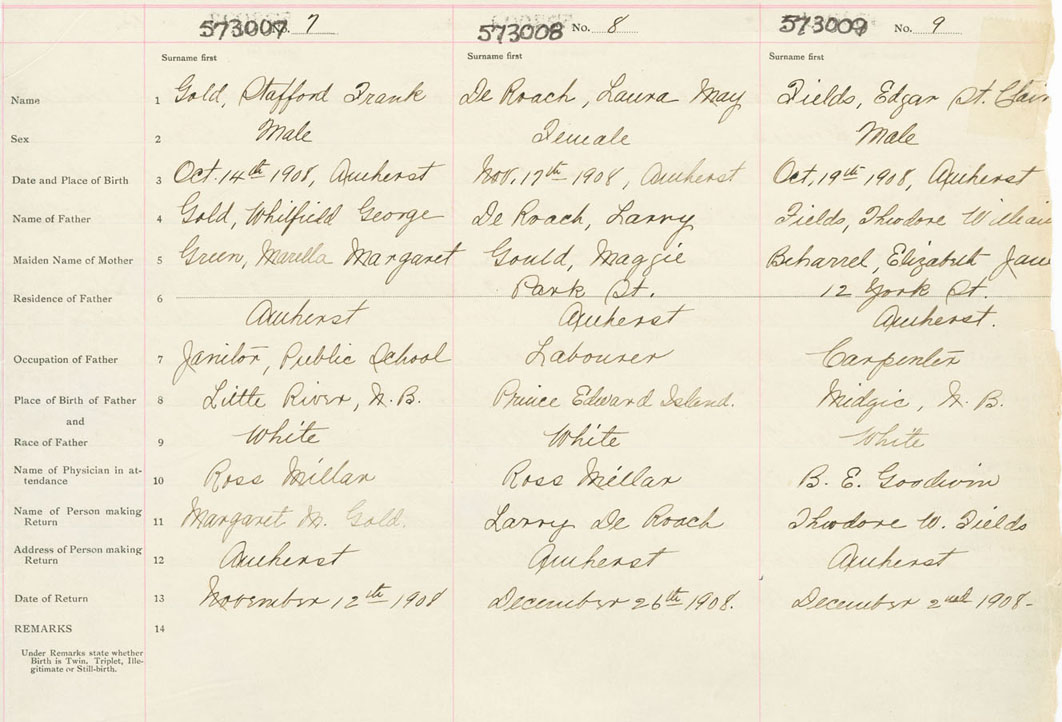 573007 No. 7 573008 No. 8 573009 No. 9
Surname first Surname first Surname first
Name 1 Gold, Stafford Frank De Roach, Laura May Fields, Edgar St. Clair
Sex 2 Male Female Male
Date and Place of Birth 3 Oct. 14th 1908, Amherst Nov. 17th 1908, Amherst Oct. 19th 1908, Amherst
Name of Father 4 Gold, Whilfield George De Roach, Larry Fields, Theodore William
Maiden Name of Mother 5 Green, Marella Margaret Gould, Maggie Beharrel, Elizabeth Jane
Park St. 12 York St.
Residence of Father 6 Amherst Amherst Amherst.
Occupation of Father 7 Janitor, Public School Labourer Carpenter
Place of Birth of Father 8 Little River, N. B. Prince Edward Island. Midgic, N. B.
and
Race of Father 9 White White White
Name of Physician in at-
tendance 10 Ross Millar Ross Millar B. E. Goodwin
Name of Person making
Return 11 Margaret M. Gold. Larry De Roach Theodore W. Fields
Address of Person making
Return 12 Amherst Amherst Amherst
Date of Return 13 November 12th 1908 December 26th 1908. December 2nd 1908-
REMARKS 14
Under Remarks state whether
Birth is Twin, Triplet, Ille-
gitimate or Still-birth.